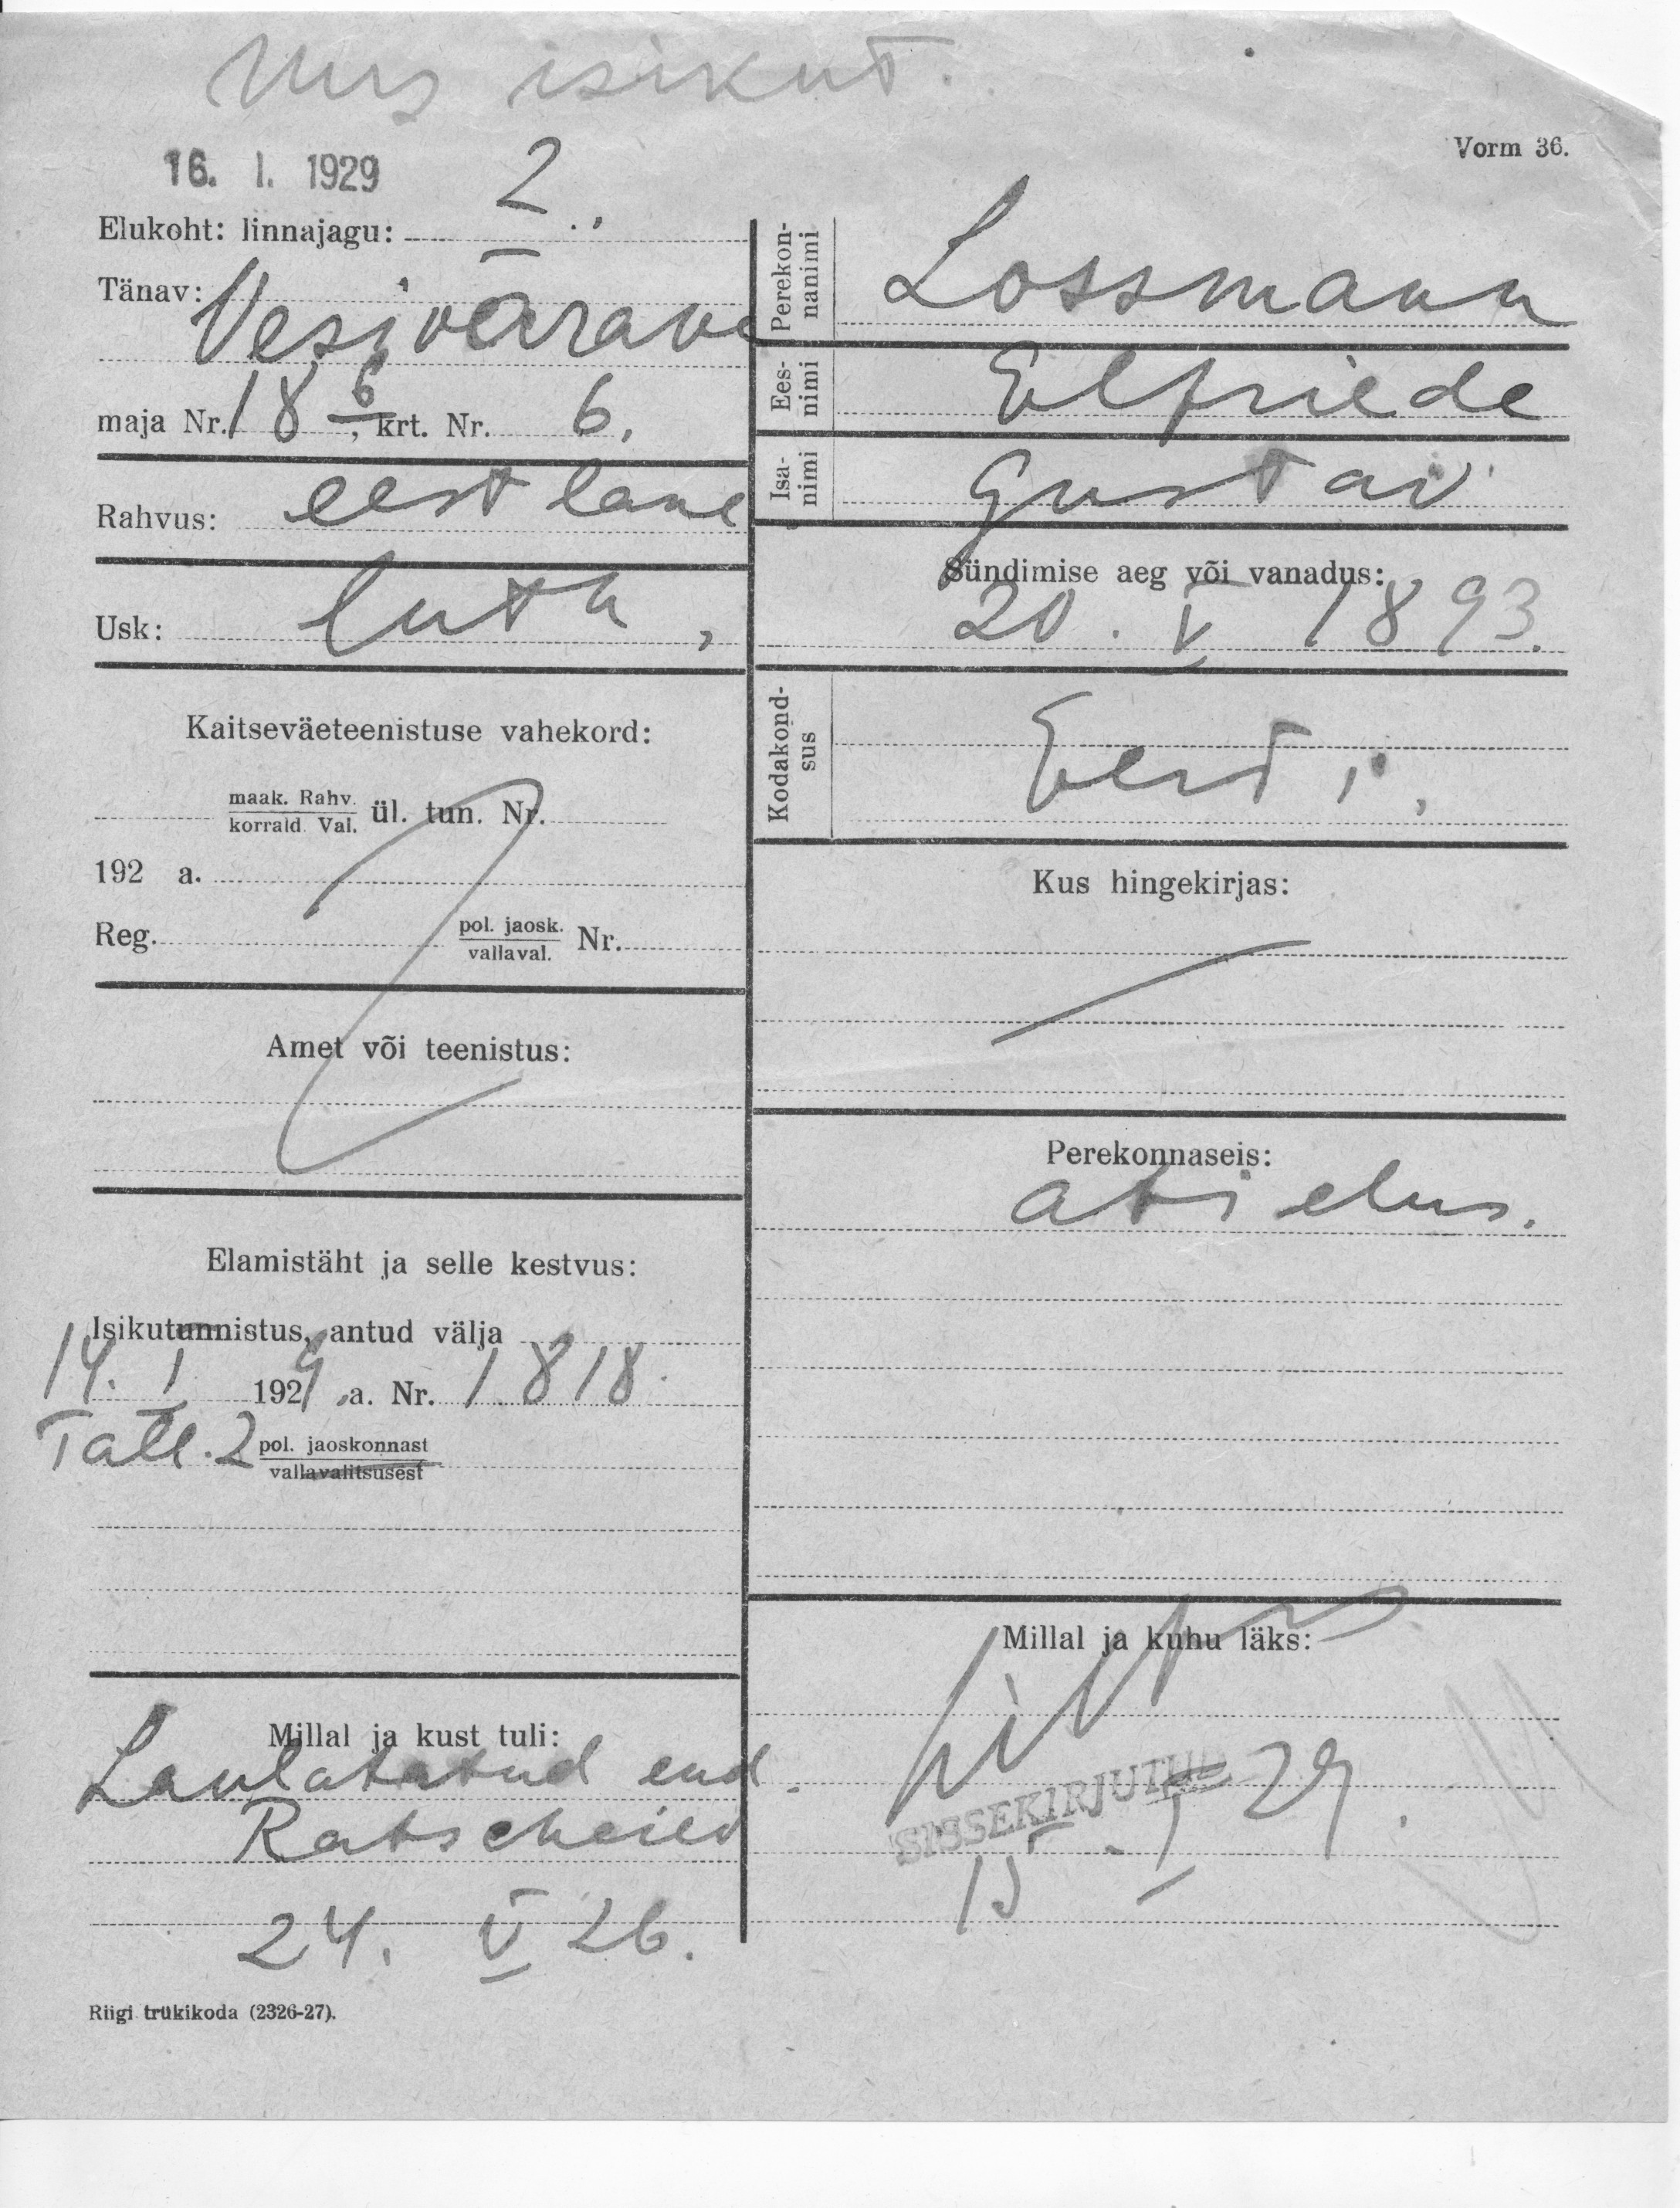 Uus isikut.
16. I. 1929
Vorm 36.
Elukoht: linnajagu: 2
Tänav: Vesivärava
maja Nr. 18 6, krt. Nr. 6.
Rahvus: eestlane
Usk: luth,
Kaitseväeteenistuse vahekord:
maak. Rahv.
korrald. Val. ül. tun. Nr.
192 a.
Reg. pol. jaosk. Nr.
vallaval.
Amet või teenistus:
Elamistäht ja selle kestvus:
Isikutunnistus, antud välja
14. I 1929 a. Nr. 1818.
Tall. 2 pol. jaoskonnast
vallavalitsusest
Millal ja kust tuli:
Laulatatud end.
24. V 26.
Riigi trükikoda (2326-27).
Perekon-
nanimi
Lossmann
Ees-
nimi
Elfriede
Isa-
nimi
Gustav
Sündimise aeg või vanadus:
20. V 1893.
Kodakond-
sus
Eesti,
Kus hingekirjas:
Perekonnaseis:
abielus.
Millal ja kuhu läks:
SISSEKIRJUTUD
15. I 29.